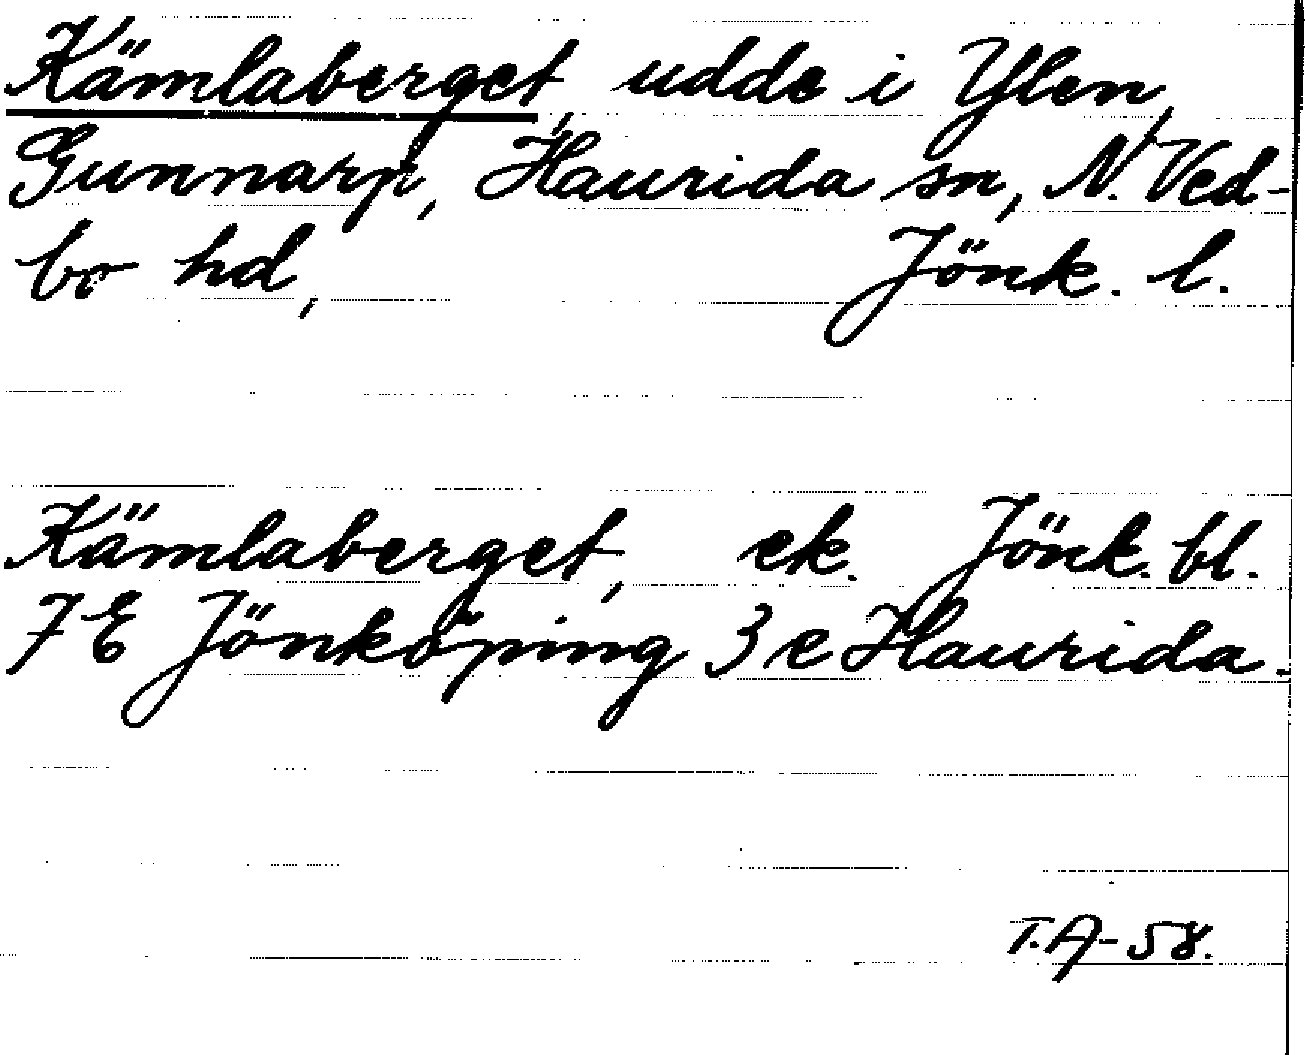 Kämlaberget, udde i Ylen,
Gunnarp, Haurida sn, N. Ved-
bo hd, Jönk. l.
Kämlaberget, ek. Jönk. bl.
7E Jönköping 3 e Haurida.
T.A-58.